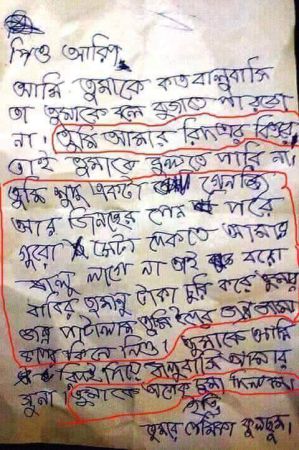 পিও আরিপ,
আমি তুমাকে কতবালুবাসি
তা তুমাকে বলে বুজাতে পারবো
না। তুমি আমার রিদয়ের বিতর
তাই তুমাকে বুলতে পারি না।
তুমি শুদু একটা গেনজি
আর জিনসের পেন পরে
গুরো সেটা দেকতে আমার
বালু লাগে না তাই বরো
বাবির তুমানু টাকা চুরি করে তুমার
জন্য পাটালাম তুমি ঈদের জামা
কিনে নিও। তুমাকে আমি
দিয়ে বালুবাসি আমার
সুনা। তুমাকে অনেক চুমা দিলাম।
ইতি
তুমার পেমিকা কুলছুম।